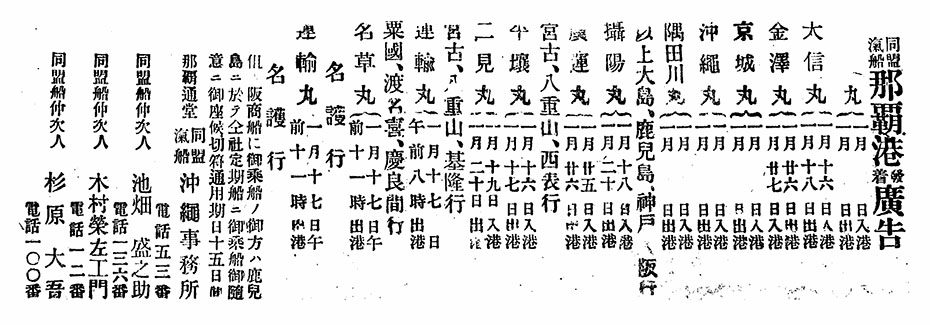 同盟汽船那覇港發着廣告
丸 一月 日入港
一月 日出港
大信丸 一月十六日入港
一月 日出港
金澤丸 一月廿六日入港
一月廿七日出港
京城丸 一月 日入港
一月 日出港
沖繩丸 一月 日入港
一月 日出港
隅田川丸 一月 日入港
一月 日出港
以上大島、鹿兒島、神戸、阪行
攝陽丸 一月十八日入港
一月二十日出港
廣運丸 一月廿五日入港
一月廿六日出港
宮古、八重山、西表行
平壤丸 一月十六日入港
一月 日出港
二見丸 一月十九日入港
一月二十日出港
宮古、八重山、基隆行
運輸丸 一月十七日
午前八時出港
粟國、渡名喜、慶良間行
名草丸 一月十七日午
前十一時出港
名護行
運輸丸 一月十七日午
前十一時出港
名護行
但阪商船に御乘船ノ御方ハ鹿兒
島ニ於テ仝社定期船ニ御乘船御隨
意ニ御座候切符通用期日十五日間
那覇通堂 同盟汽船 沖繩事務所
電話五三番
同盟船仲次人 池畑盛之助
電話一三六番
同盟船仲次人 木村榮左工門
電話一二番
同盟船仲次人 杉原大吾
電話一〇〇番